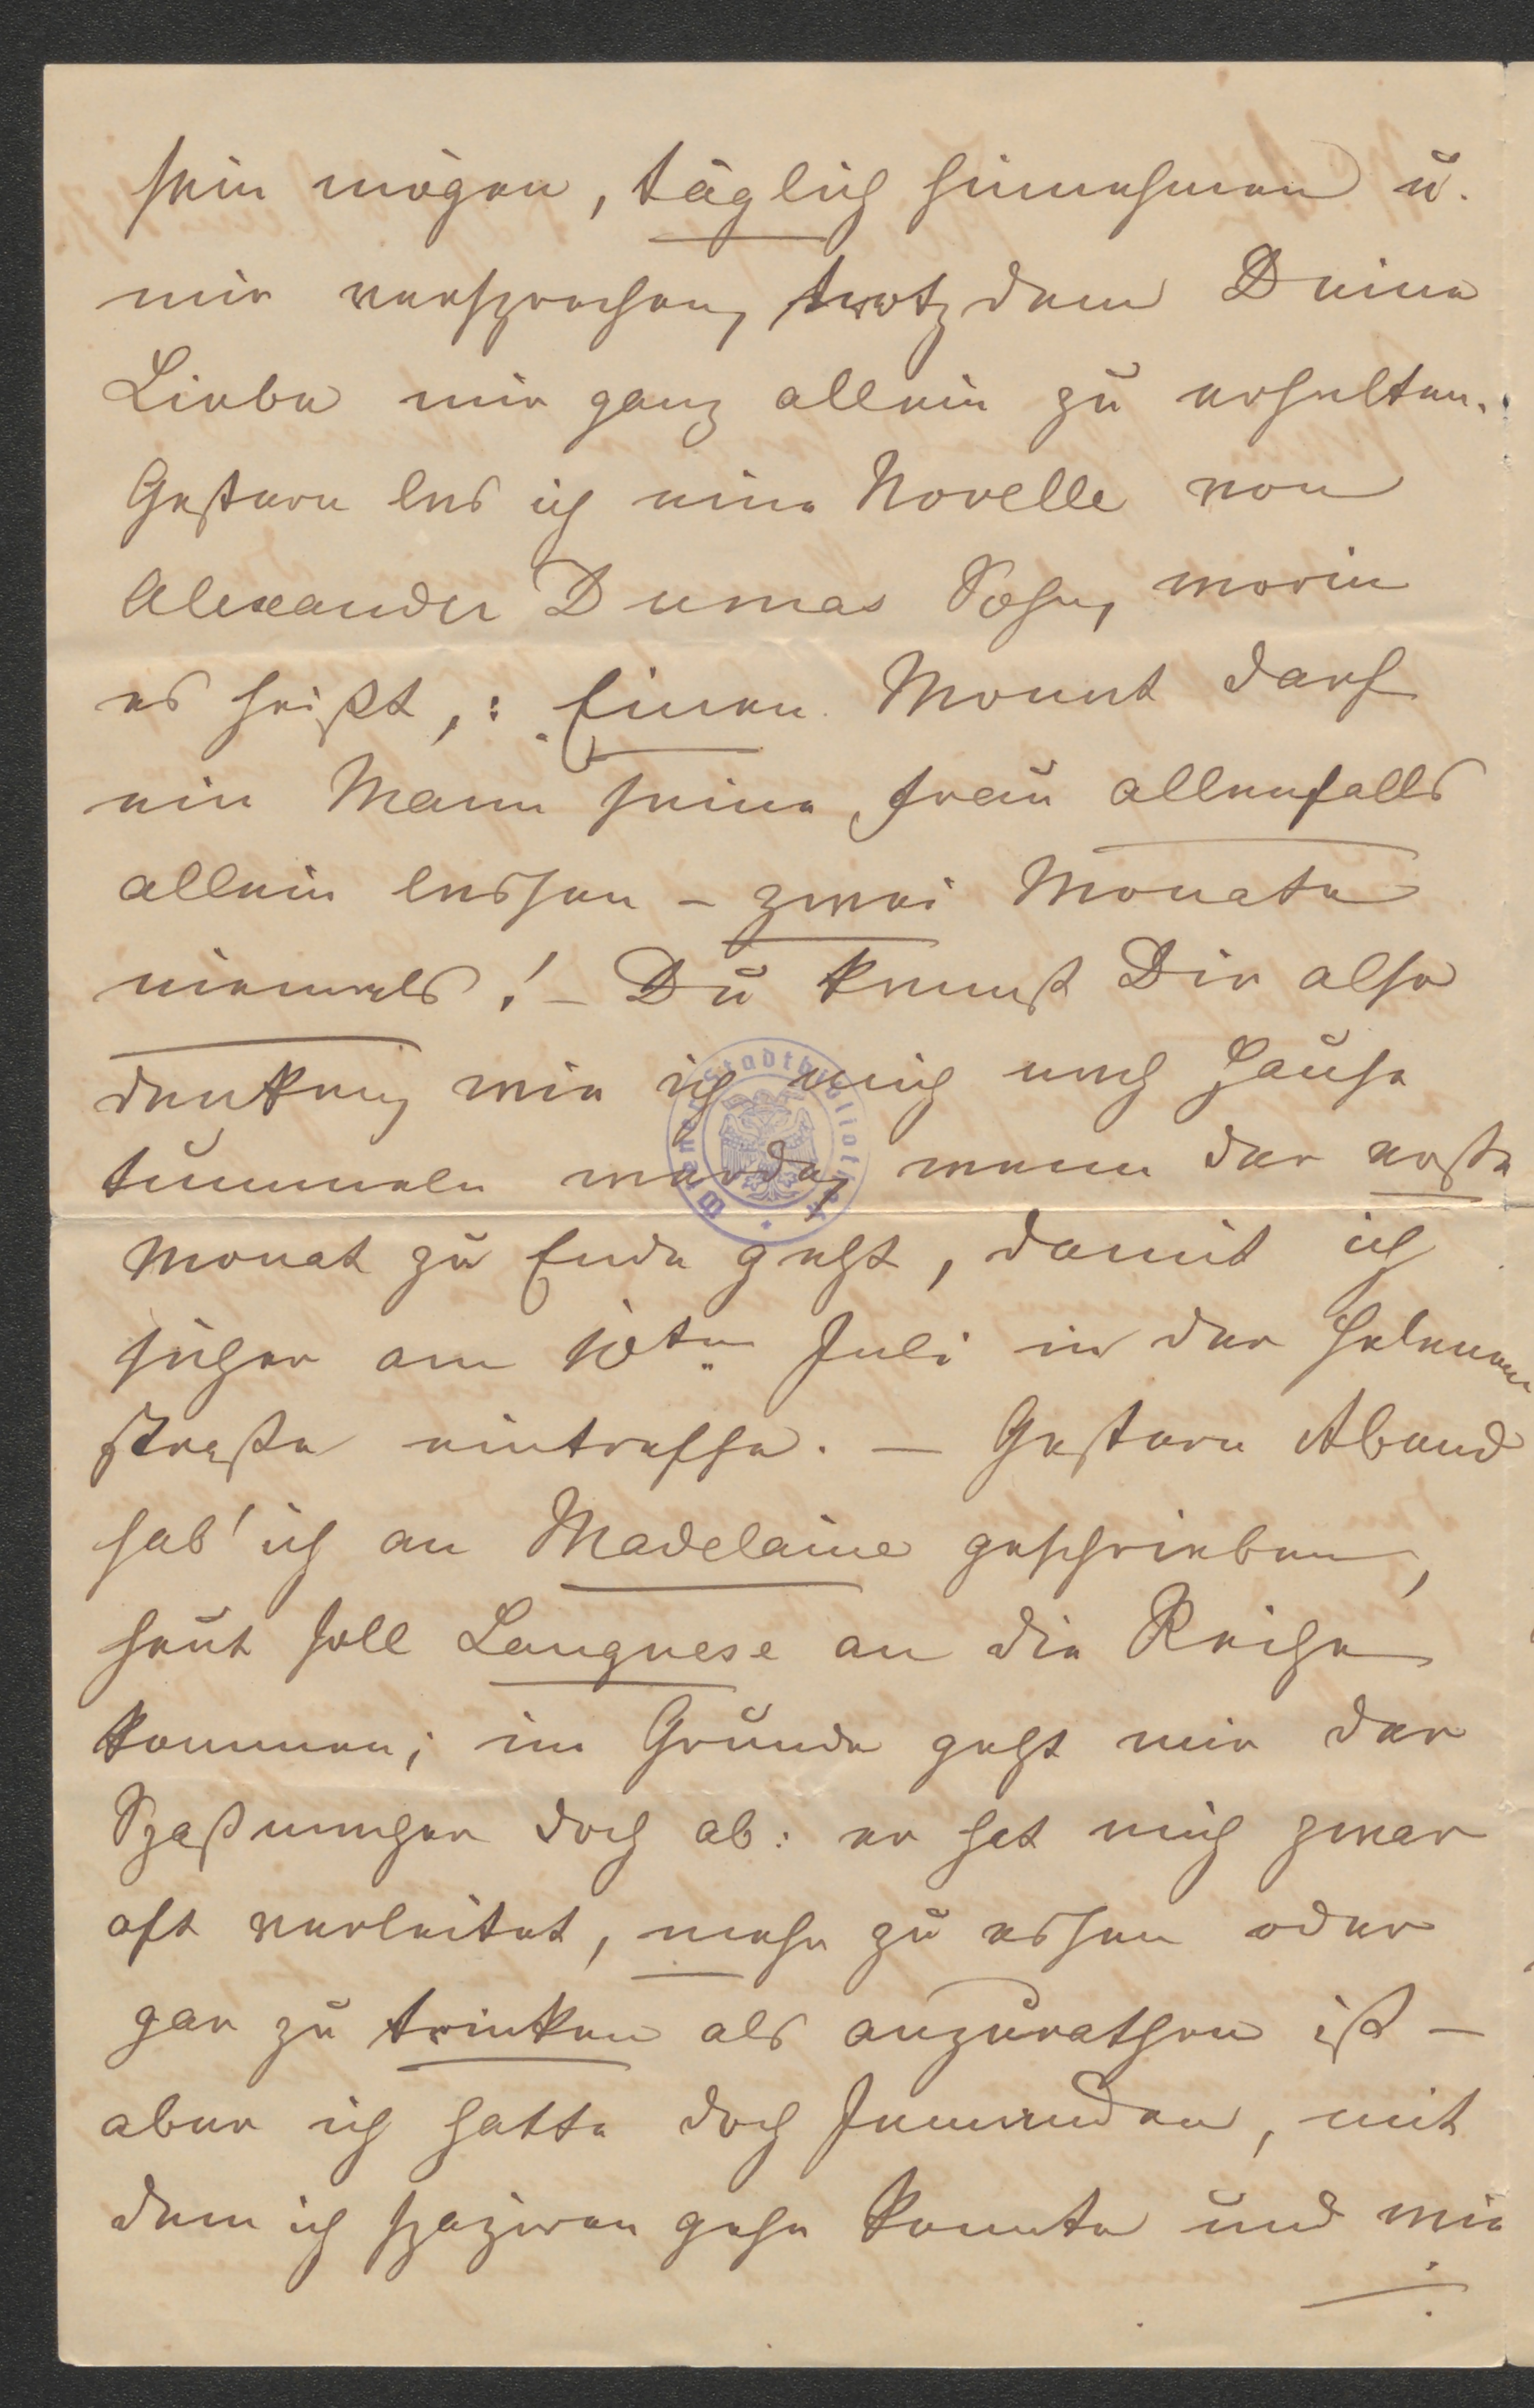 sein mögen, täglich hinnehmen u.
mir versprechen, trotzdem Deine
Liebe mir ganz allein zu erhalten.
Gestern las ich eine Novelle von
Alexander Dumas Sohn, worin
es heißt,: Einen Monat darf
ein Mann seine Frau allenfalls
allein lassen – zwei Monate
niemals! – Du kannst Dir also
denken, wie ich mich nach Hause
tummeln werde, wenn der erste
Monat zu Ende geht, damit ich
sicher am 10ten Juli in der Helenen
straße eintreffe. – Gestern Abend
hab' ich an Madelaine geschrieben,
heut soll Langnese an die Reihe
kommen; im Grunde geht mir der
doch ab: er hat mich zwar
oft verleitet, mehr zu essen oder
gar zu trinken als anzurathen ist –
aber ich hatte doch Jemanden, mit
dem ich spaziren gehn konnte und wie
Wiener Stadtbibliothek